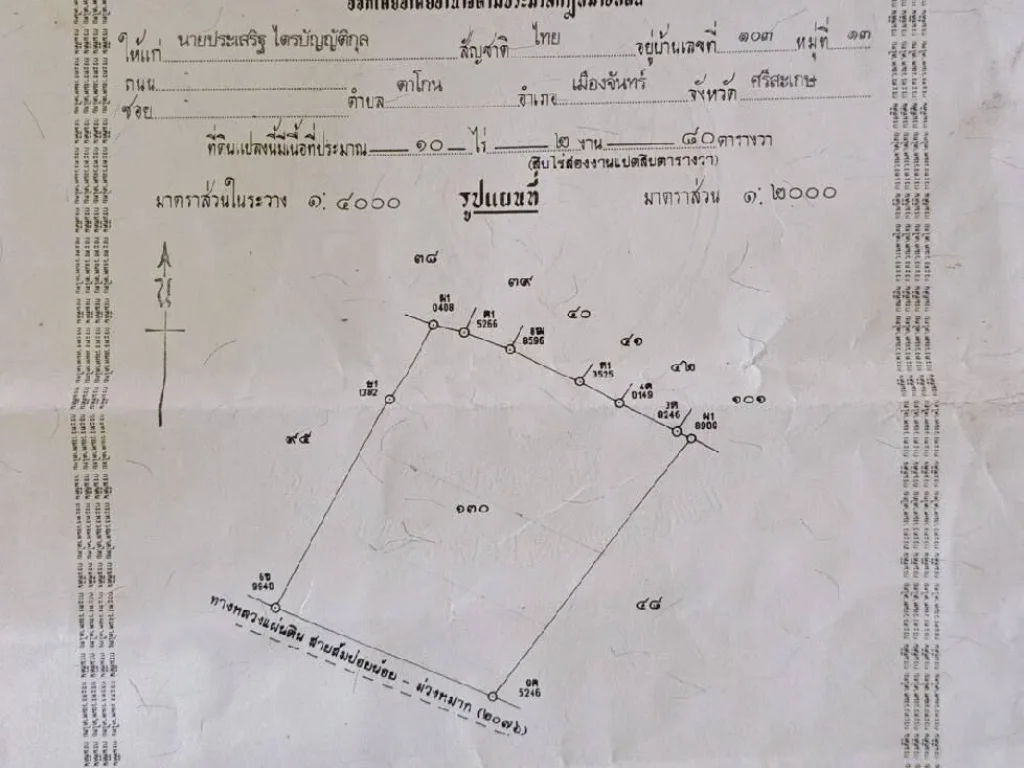 ออกโดยอาศัยอำนาจตามประมวลกฎหมายที่ดิน
ให้แก่ นายประเสริฐ ไตรบัญญัติกุล สัญชาติ ไทย อยู่บ้านเลขที่ ๑๐๗ หมู่ที่ ๑๓
ถนน
ซอย ตำบล ตาโกน อำเภอ เมืองจันทร์ จังหวัด ศรีสะเกษ
ที่ดินแปลงนี้มีเนื้อที่ประมาณ ๑๐ ไร่ ๒ งาน ๘๐ ตารางวา
(สิบไร่สองงานแปดสิบตารางวา)
มาตราส่วนในระวาง ๑: ๔๐๐๐ รูปแผนที่ มาตราส่วน ๑: ๒๐๐๐
น
๓๘
๓๙
๔๐
๔๑
๔๒
๑๐๑
๙๕
๑๓๐
๔๘
ผ1
0408
ต1
5266
8596
ต1
3525
0149
3ต
8246
ผ1
1382
9640
5246
ทางหลวงแผ่นดิน สายส้มป่อยน้อย - ม่วงหมาก (๒๐๗๖)